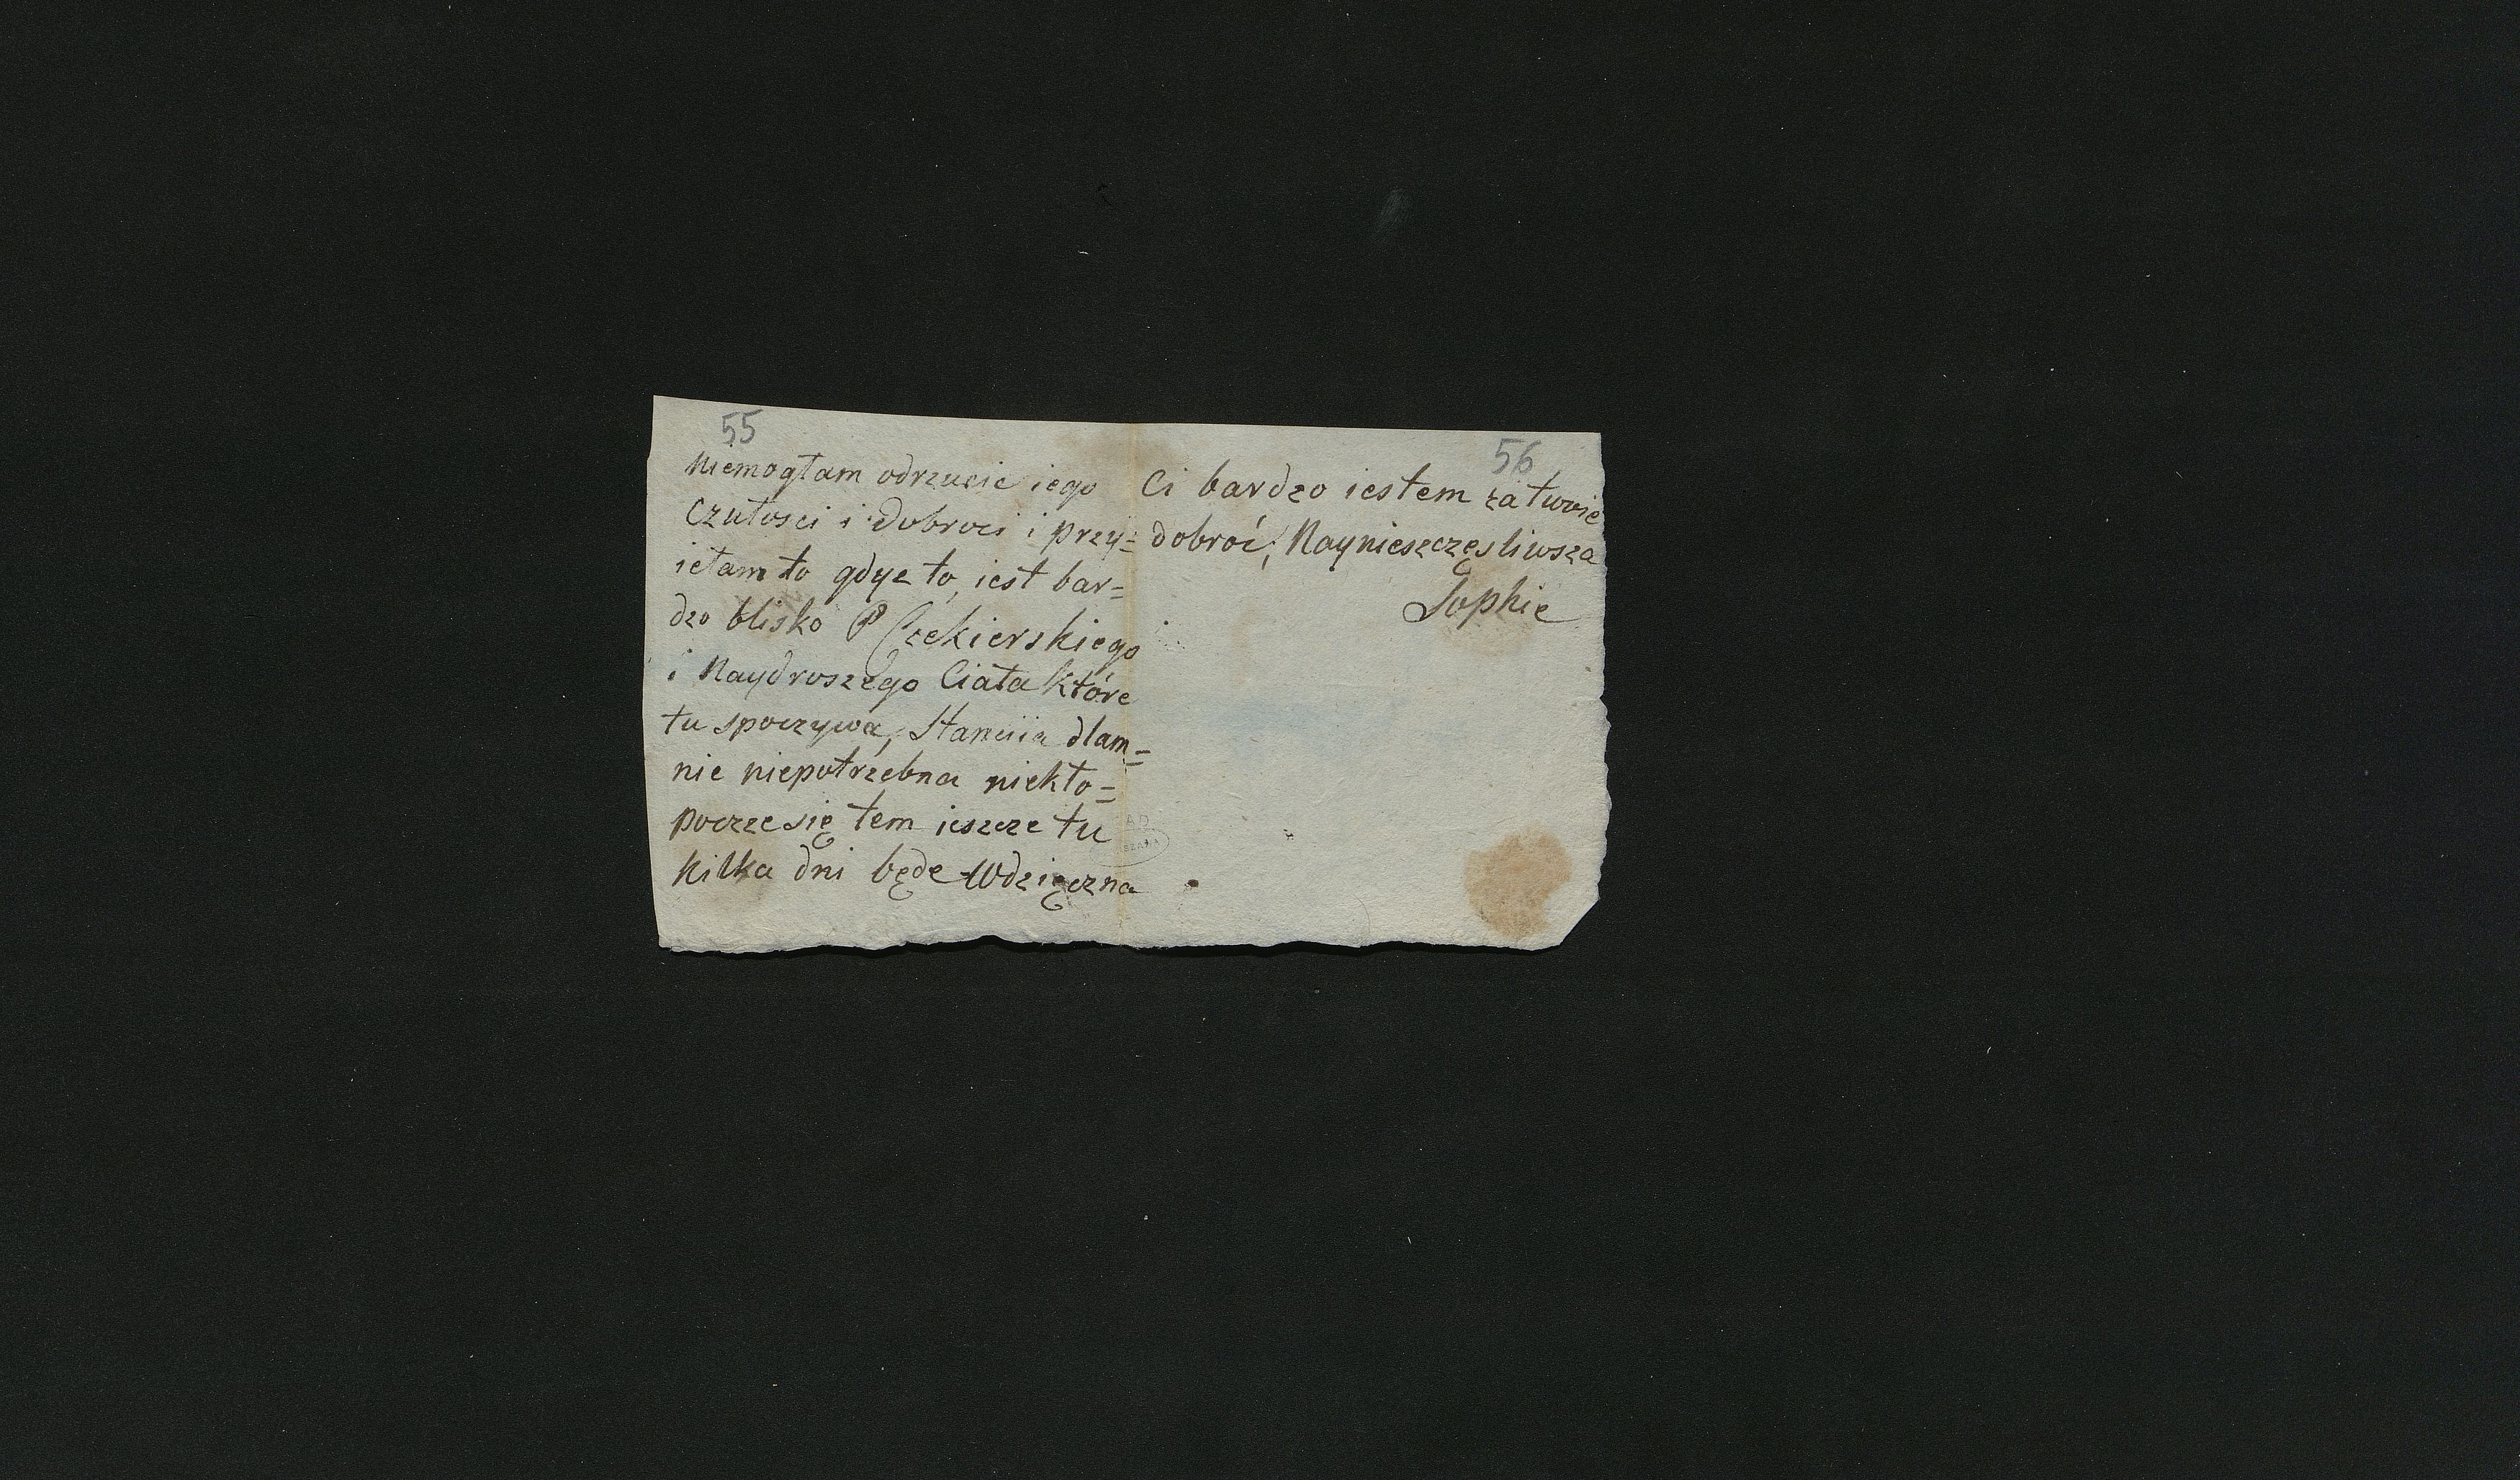 55
Niemogłam odrzucic iego
Czułosci i dobroci i przy=
ietam to gdyz to, iest bar=
dzo blisko P Czekierskiego
i Naydroszego Ciała które
tu spoczywa, Stanciia dlam=
nie niepotrzebna niekło=
pocze się tem ieszcze tu
kilka dni będe Wdzięczna
56
Ci bardzo iestem za twoie
dobroć, Naynieszczęsliwsza
Sophie